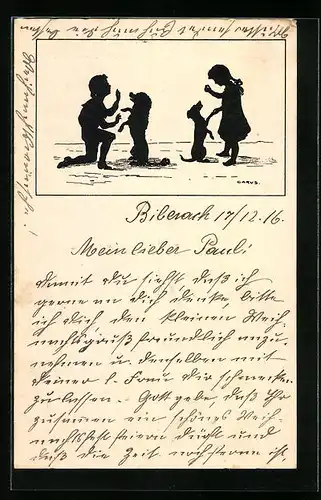 CARUS.
Biberach 17/12.16.
Mein lieber Paul!
Damit du siehst, daß ich
gerne an dich denke, bitte
ich dich, den kleinen Weih-
nachtsgruß freundlich anzu-
nehmen u. denselben mit
deiner l. Frau dir schmecken
zu lassen. Gott gebe, daß Ihr
zusammen ein schönes Weih-
nachtsfest feiern dürft und
daß die Zeit noch ferne ist,